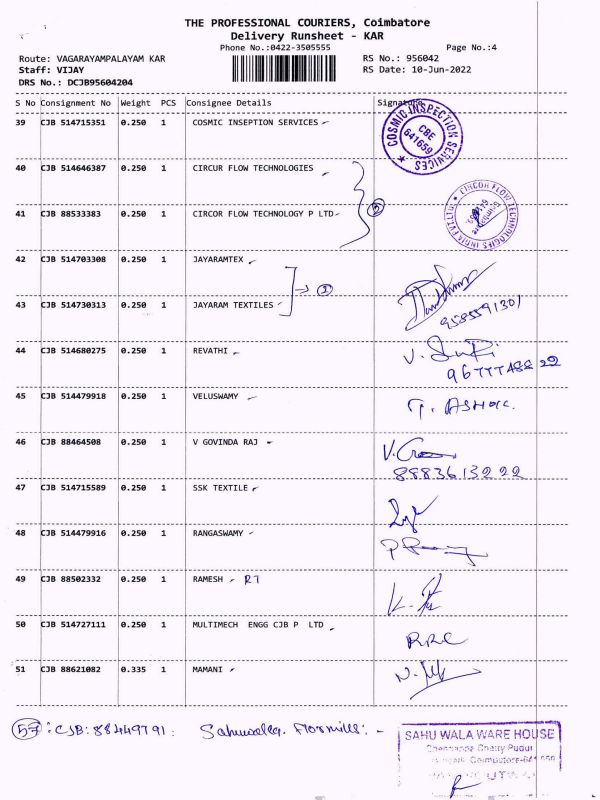 THE PROFESSIONAL COURIERS, Coimbatore
Delivery Runsheet - KAR
Phone No.:0422-3505555
Page No.:4
Route: VAGARAYAMPALAYAM KAR
RS No.: 956042
Staff: VIJAY
RS Date: 10-Jun-2022
DRS No.: DCJB95604204
S No Consignment No Weight PCS Consignee Details Signature
39 CJB 514715351 0.250 1 COSMIC INSEPTION SERVICES
COSMIC INSPECTION SERVICES CBE 641659
40 CJB 514646387 0.250 1 CIRCUR FLOW TECHNOLOGIES
41 CJB 88533383 0.250 1 CIRCOR FLOW TECHNOLOGY P LTD
CIRCOR FLOW TECHNOLOGIES INDIA PVT LTD
42 CJB 514703308 0.250 1 JAYARAMTEX
43 CJB 514730313 0.250 1 JAYARAM TEXTILES
9585591301
44 CJB 514680275 0.250 1 REVATHI
45 CJB 514479918 0.250 1 VELUSWAMY
T. ASHOK.
46 CJB 88464508 0.250 1 V GOVINDA RAJ
8883613222
47 CJB 514715589 0.250 1 SSK TEXTILE
48 CJB 514479916 0.250 1 RANGASWAMY
49 CJB 88502332 0.250 1 RAMESH RT
50 CJB 514727111 0.250 1 MULTIMECH ENGG CJB P LTD
RRC
51 CJB 88621082 0.335 1 MAMANI
57: CJB: 88449791: -
SAHU WALA WARE HOUSE
Chennappa Chetty Pudur
Coimbatore-641